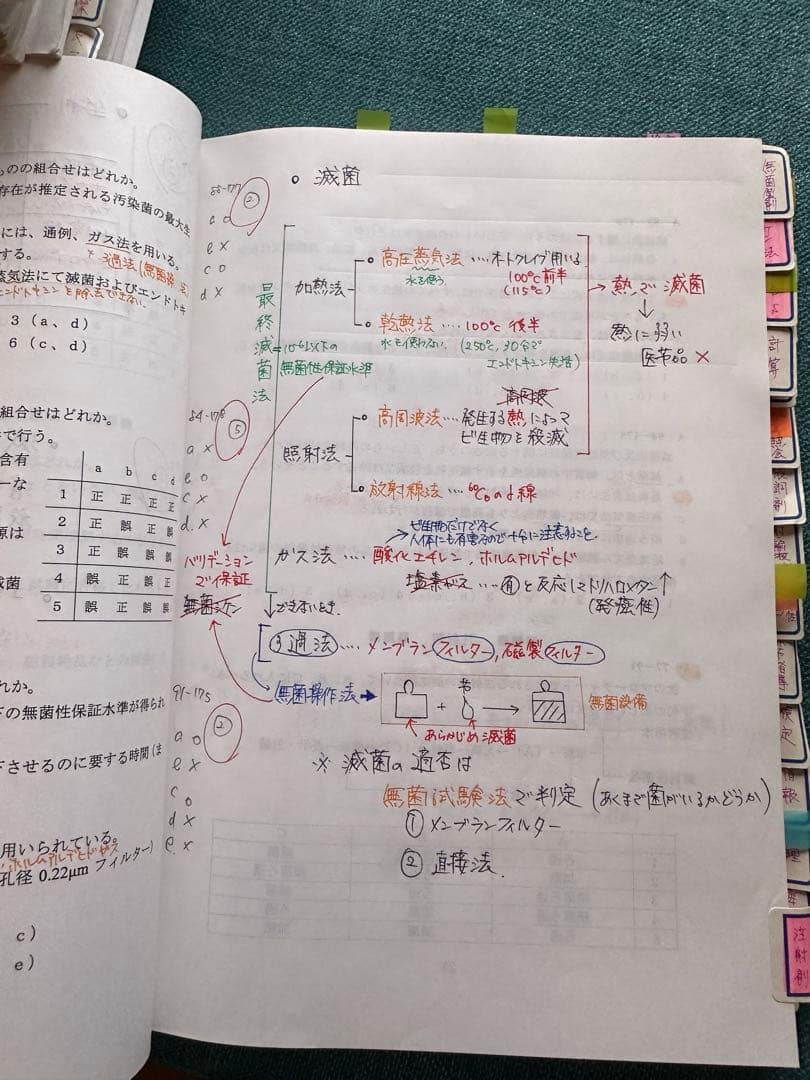 ものの組合せはどれか。
存在が推定される汚染菌の最大生
には、通例、ガス法を用いる。
する。
蒸気法にて滅菌およびエンドトキ
エンドトキシンを除去できない
3 (a、d)
6 (c、d)
組合せはどれか。
で行う。
含有
ーな
原は
滅菌
a b c d
1 正 正 正 正
2 正 誤 誤 誤
3 正 正 誤 誤
4 誤 正 誤 誤
5 誤 正 誤 誤
れか。
下の無菌性保証水準が得られ
下させるのに要する時間(ま
用いられている。
ホルムアルデヒドガス
孔径 0.22μm フィルター)
c)
e)
88-177
②
a ○
e ×
c ○
d ×
84-178
⑤
a ×
e ○
c ×
d. ×
91-175
②
a ○
e ×
c ○
d ×
e. ×
○ 滅菌
最終滅菌法
加熱法
○ 高圧蒸気法 ‥‥オートクレイブ用いる
水を使う
100℃前半
(115℃)
○ 乾熱法 ‥‥100℃後半
水を使わない
(250℃, 30分で
エンドトキシン失活)
=10⁻⁶以下の
無菌性保証水準
→ 熱で滅菌
↓
熱に弱い
医薬品 ×
高周波
照射法
○ 高周波法‥‥発生する熱によって
ビ生物を殺滅
○ 放射線法‥‥⁶⁰Coのγ線
ビ生物だけでなく
人体にも有害なので十分に注意すること
ガス法 ‥‥ 酸化エチレン, ホルムアルデヒド
塩素ガス ‥‥㊒と反応してトリハロメタン↑
(発癌性)
バリデーション
で保証
無菌
↓できないとき.
ろ過法‥‥メンブランフィルター, 磁製フィルター
無菌操作法 →
+ →
無菌設備
あらかじめ滅菌
※ 滅菌の適否は
無菌試験法で判定 (あくまで菌がいるかどうか)
① メンブランフィルター
② 直接法.
無菌製剤
計算
照会
注射剤